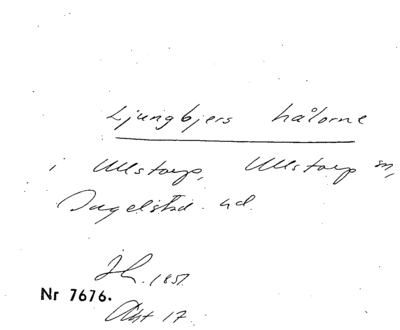 Ljungbjers hålorne
i Ullstorp, Ullstorp sn,
Ingelstad hd.
1851
Nr 7676.
Akt 17